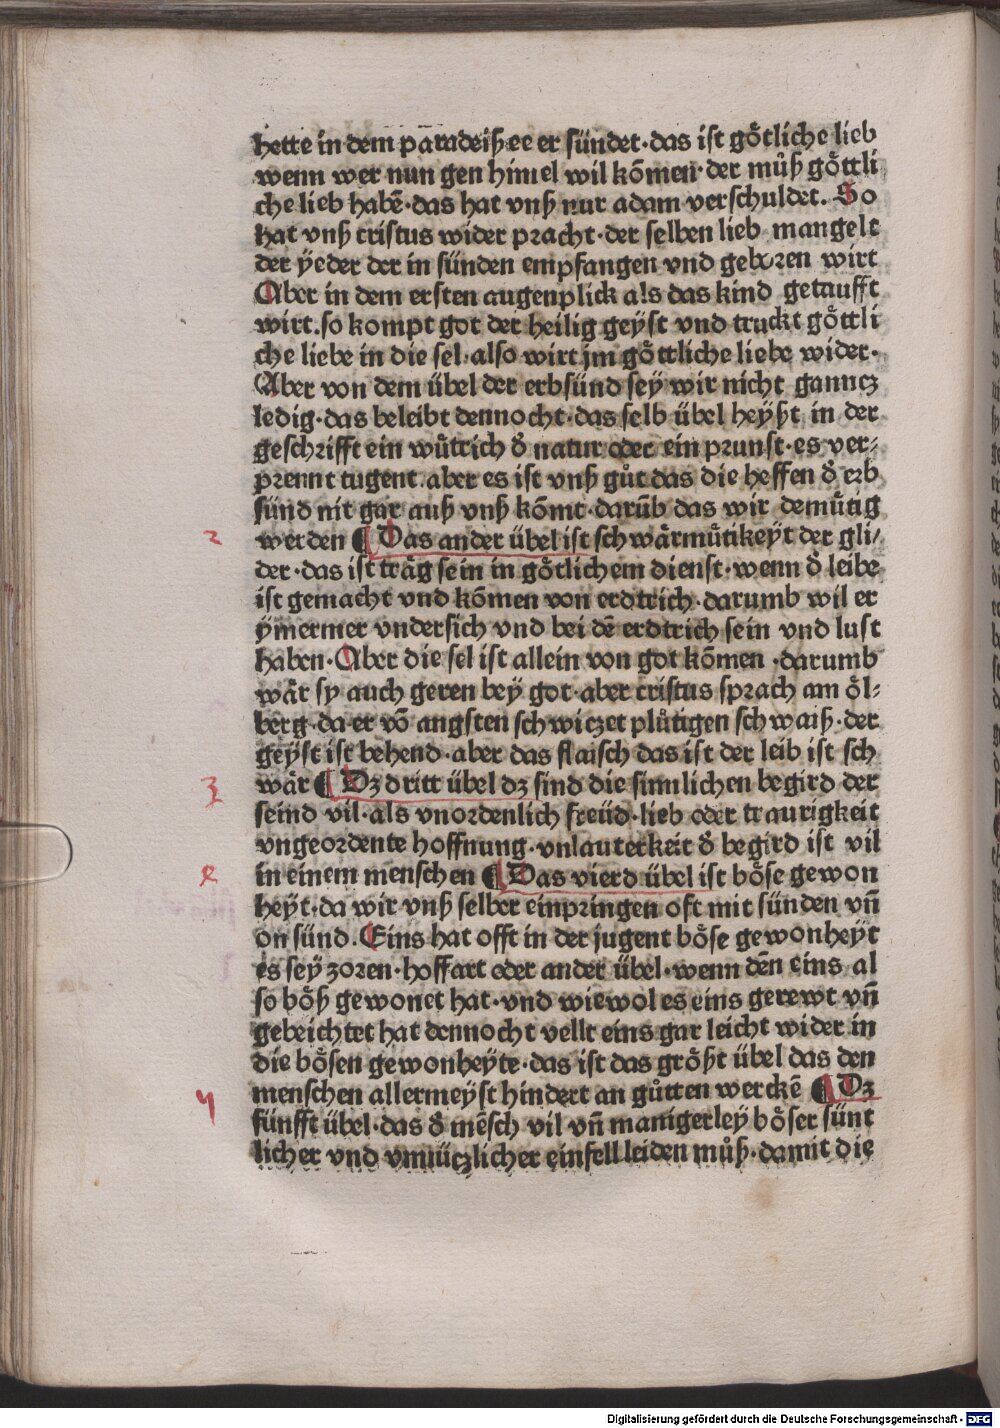 hette in dem paradeiß ee er sündet·das ist goͤtliche lieb
wenn wer nun gen himel wil koͤmen·der muͦß goͤttli
che lieb habē·das hat vnß nur adam verschuldet. So
hat vnß cristus wider pracht·der selben lieb mangelt
der ÿeder der in sünden empfangen vnd geboren wirt
Aber in dem ersten augenplick als das kind getaufft
wirt.so kompt got der heilig geÿst vnd truckt goͤttli
che liebe in die sel·also wirt jm goͤttliche liebe wider·
Aber von dem übel der erbsünd seÿ wir nicht ganncz
ledig·das beleibt dennocht·das selb übel heÿßt in der
geschrifft ein wuͤtrich d̕ natur oder ein prunst·es ver⸗
prennt tugent·aber es ist vnß guͦt das die heffen d̕ erb
sünd nit gar auß vnß kōmt·darūb das wir demuͤtig
werden ¶ Das ander übel ist schwaͤrmuͤtikeÿt der gli/
der·das ist traͤg sein in goͤtlichem dienst·wenn d̕ leibe
ist gemacht vnd kōmen von erdtrich·darumb wil er
ÿmermer vndersich vnd bei dē erdtrich sein vnd lust
haben·Aber die sel ist allein von got kōmen·darumb
waͤr sy auch geren beÿ got·aber cristus sprach am oͤl⸗
berg·da er vō angsten schwiczet pluͤtigen schwaiß·der
geÿst ist behend·aber das flaisch das ist der leib ist sch
waͤr ¶ Dz dritt übel dz sind die sinnlichen begird der
seind vil·als vnordenlich freüd·lieb oder traurigkeit
vngeordente hoffnung·vnlauterkeit d̕ begird ist vil
in einem menschen ¶ Das vierd übel ist boͤse gewon
heÿt·da wir vnß selber einpringen oft mit sünden vñ
on sünd·Eins hat offt in der jugent boͤse gewonheÿt
es seÿ zoren·hoffart oder ander übel·wenn dēn eins al
so boͤß gewonet hat·vnd wiewol es eins gerewt vñ
gebeichtet hat dennocht vellt eins gar leicht wider in
die boͤsen gewonheÿte·das ist das groͤßt übel das den
menschen allermeÿst hindert an guͤtten werckē ¶ Dz
fünfft übel·das d̕ mēsch vil vñ manigerleÿ boͤser sünt
licher vnd vnnüczlicher einfell leiden muͦß·damit die
2
3
4
Digitalisierung gefördert durch die Deutsche Forschungsgemeinschaft - DFG